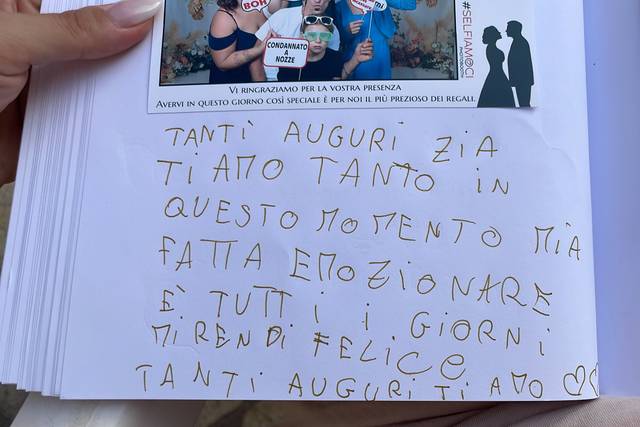 BOH
CONDANNATO A
NOZZE
#SELFIAMOCI
VI RINGRAZIAMO PER LA VOSTRA PRESENZA
AVERVI IN QUESTO GIORNO COSÌ SPECIALE È PER NOI IL PIÙ PREZIOSO DEI REGALI.
TANTI AUGURI ZIA
TI AMO TANTO IN
QUESTO MOMENTO MIA
FATTA EMOZIONARE
È TUTTI I GIORNI
MI RENDI FELICE
TANTI AUGURI TI AMO ♡♡